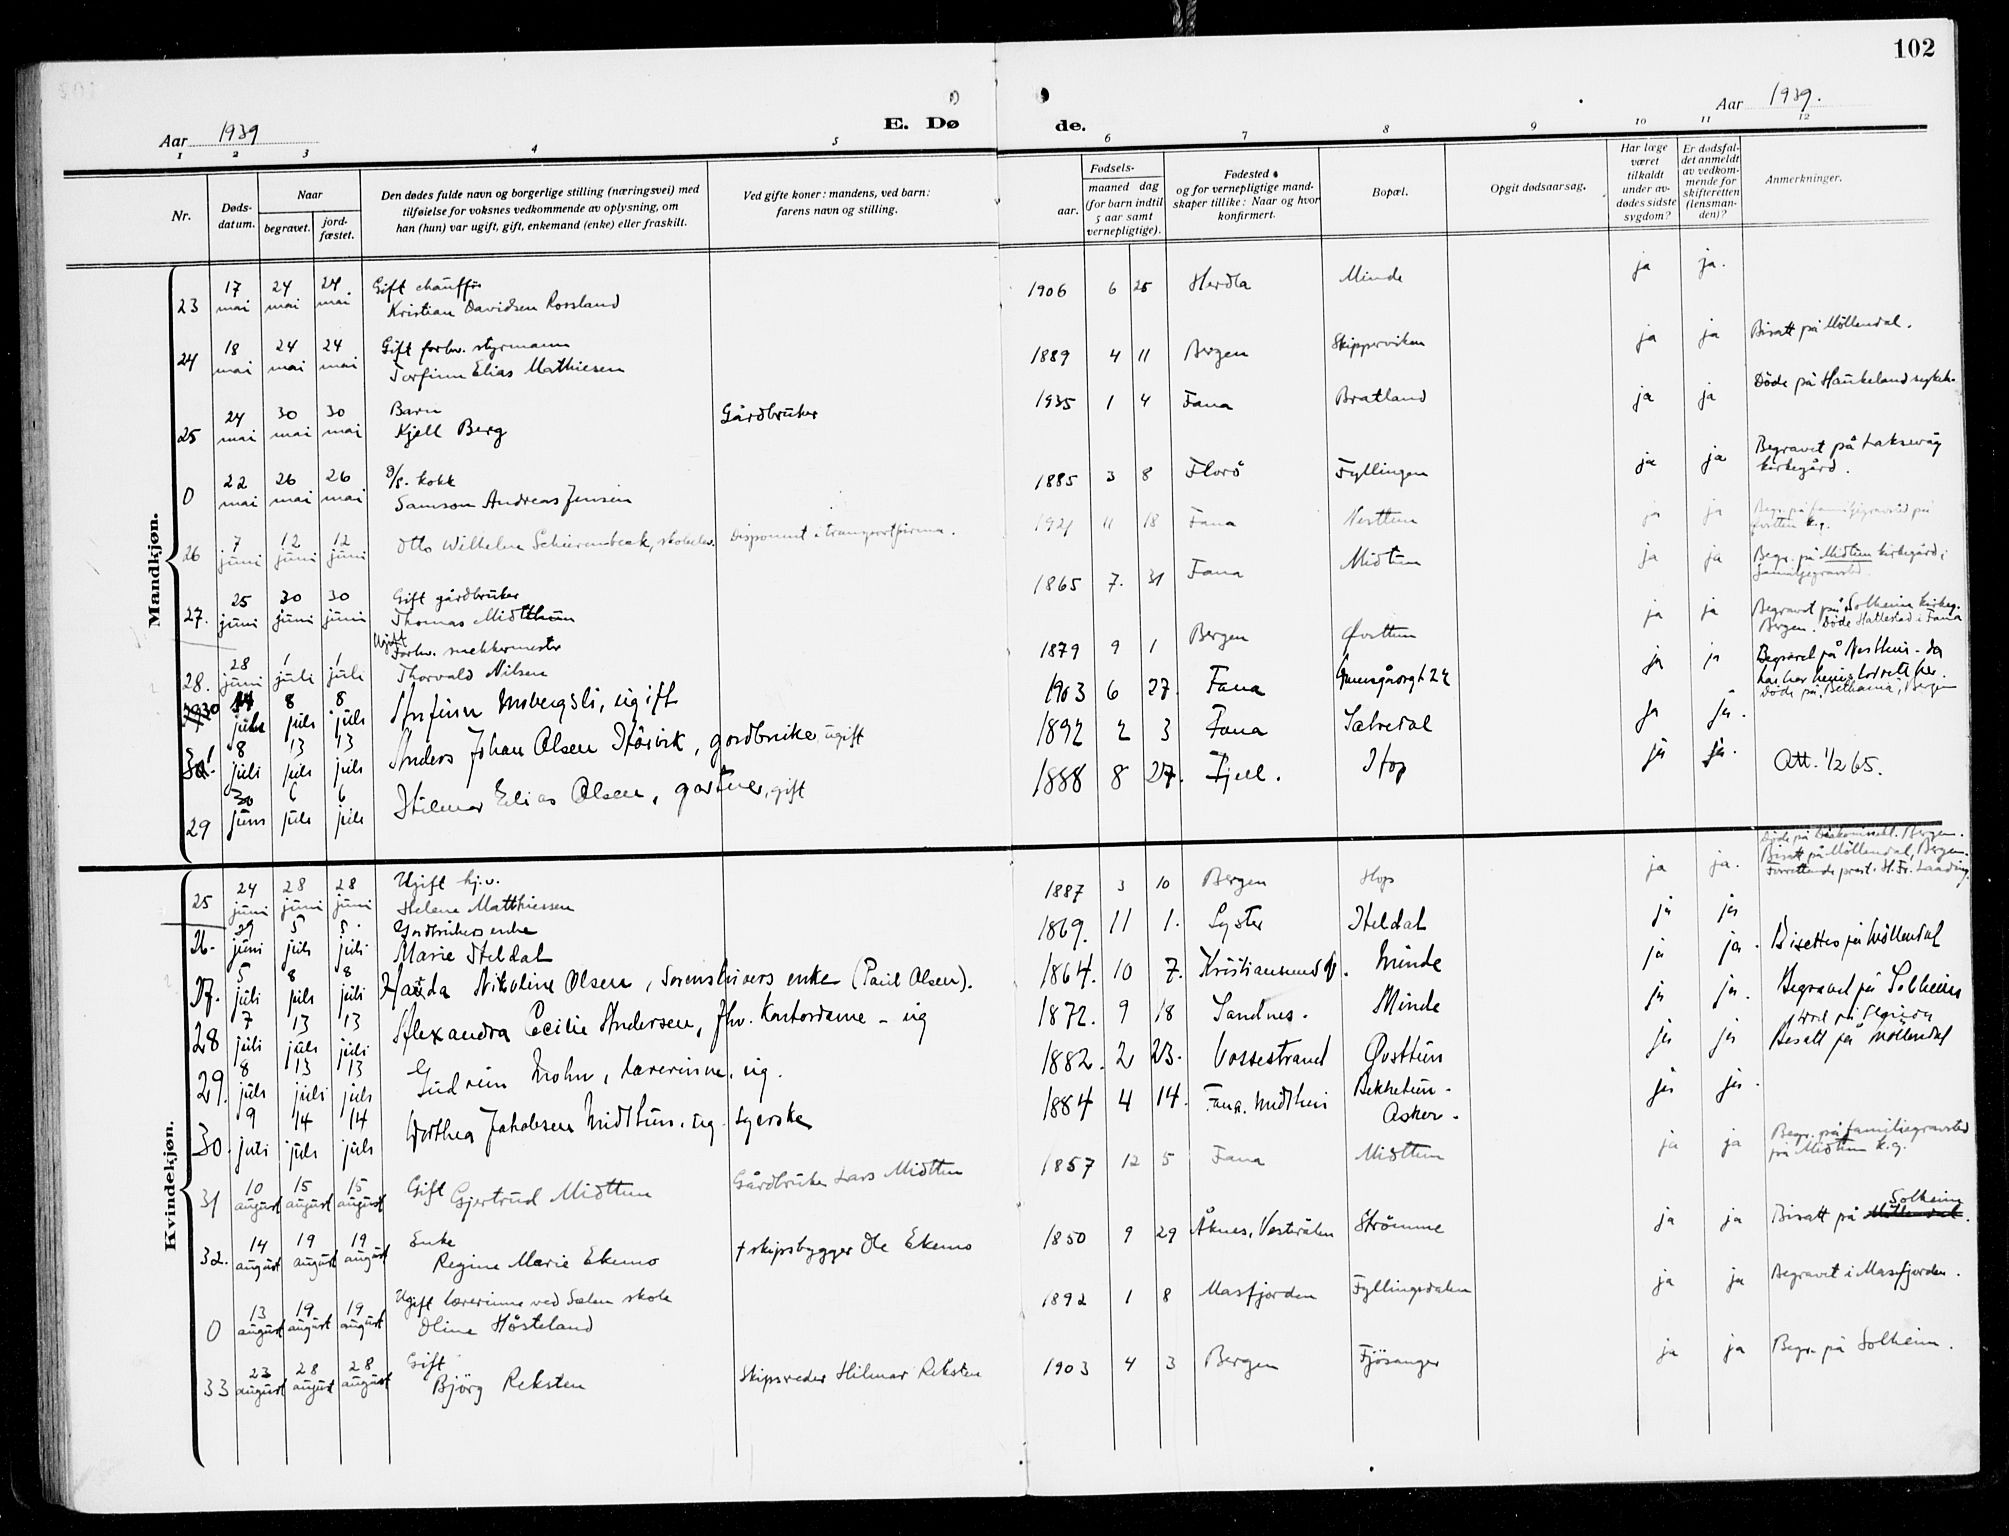 102
Aar 1939
E. Døde.
Aar 1939.
1 2 3 4 5 6 7 8 9 10 11 12
Nr.
Døds-datum.
Naar
begravet.
jord-fæstet.
Den dødes fulde navn og borgerlige stilling (næringsvei) med
tilføielse for voksnes vedkommende av oplysning, om
han (hun) var ugift, gift, enkemand (enke) eller fraskilt.
Ved gifte koner: mandens, ved barn:
farens navn og stilling.
Fødsels-
aar.
maaned dag
(for barn indtil
5 aar samt
vernepligtige).
Fødested
og for vernepligtige mand-
skaper tillike: Naar og hvor
konfirmert.
Bopæl.
Opgit dødsaarsag.
Har læge
været
tilkaldt
under av-
dødes sidste
sygdom?
Er dødsfal-
det anmeldt
av vedkom-
mende for
skifteretten
(lensman-
den)?
Anmerkninger.
Mandkjøn.
23 17 mai 24 mai 24 mai Gift chauffør
Kristian Davidsen Rossland 1906 6 25 Herdla Minde ja ja.
24 18 mai 24 mai 24 mai Gift forhv. styrmann
Torfinn Elias Mathiesen 1889 4 11 Bergen Skipperviken ja ja Bisatt på Møllendal.
25 24 mai 30 mai 30 mai Barn
Kjell Berg Gårdbruker 1935 1 4 Fana Bratland ja ja Døde på Haukeland sykeh.
0 22 mai 26 mai 26 mai D/S. kokk
Samson Andreas Jensen 1885 3 8 Florö Fyllingen ja ja Begravet på Laksevåg
kirkegård.
26 7 juni 12 juni 12 juni Otto Wilhelm Schierenbeck, skoleelev. Disponent i transportfirma. 1921 11 18 Fana Nesttun ja ja Begr. på familiegravsted på
27. 25 juni 30 juni 30 juni Gift gårdbruker
Thomas Midtthun 1865 7. 31 Fana Midtun ja ja Begr. på Midtun kirkegård i
familiegravsted.
28. 28 juni 1 juli 1 juli Ugift
Forhv. snekkermester
Thorvald Nilsen 1879 9 1 Bergen Øvsttun ja ja Begravet på Solheim kirkeg.
Bergen. Døde Hattestad i Fana
30 8 juli 8 juli ugift 1903 6 27. Fana ja ja Begravet på Nesttun - da
Døde på "Bethania", Bergen
8 juli 13 juli 13 juli Anders Johan Olsen Hårvik, gårdbruker, ugift 1892 2 3 Fana Sælvedal ja ja.
29 30 juni 6 juli 6 juli Hilmar Elias Olsen, gartner, gift 1888 8 27. Fjell. Hop ja ja. Att. 1/2 65.
Kvindekjøn.
25 24 juni 28 juni 28 juni Ugift hj.v.
Helene Matthiessen 1887 3 10 Bergen Hop ja ja. Døde på Diakonissehl. Bergen.
Bisatt på Møllendal, Bergen.
26. 29 juni 5 juli 5. juli Gårdbrukers enke
Marie Heldal 1869. 11 1. Lyster Heldal ja ja
27. 5 juli 8 juli 8 juli Hauda Nikoline Olsen, Sorenskrivers enke (Paul Olsen). 1864. 10 7. Kristiansund N. Minde ja ja. Bisettes på Møllendal
28 7 juli 13 juli 13 juli Alexandra Cecilie Andersen, fhv. Kontordame - ug 1872. 9 18 Sandnes. Minde ja ja. Begravet på Solheim
29. 8 juli 13 juli 13 juli Gudrun Mohn, lærerinne, ug. 1882. 2 23. Vossestrand Øvsttun ja ja Bisatt på Møllendal
30. 9 juli 14 juli 14 juli Dorthea Jakobsen Midtthun. ug. syerske 1884 4 14. Fana. Midtthun Bekketun.
Asker. ja ja.
31 10 august 15 august 15 august Gift Gjertrud Midttun Gårdbruker Lars Midttun 1857 12 5 Fana Midttun ja ja Begr. på familiegravsted
på Midttun k.g.
32. 14 august 19 august 19 august Enke
Regine Marie Ekemo † skipsbygger Ole Ekemo 1850 9 29 Åknes, Vesterålen Strömme ja ja Bisatt på Solheim.
0 13 august 19 august 19 august Ugift lærerinne ved Sælen skole
Oline Håsteland 1892 1 8 Masfjorden Fyllingsdalen ja ja Begravet i Masfjorden.
33 23 august 28 august 28 august Gift
Bjørg Reksten Skipsreder Hilmar Reksten 1903 4 3 Bergen Fjösanger ja ja Begr. på Solheim.